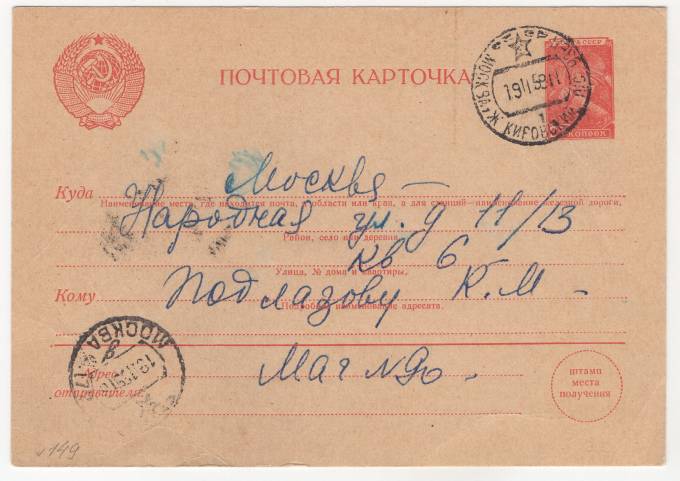 ПОЧТОВАЯ КАРТОЧКА
КОПЕЕК
МОСКВА
КИРОВСКИЙ
Куда
Москва —
Наименование места, где находится почта, и области или края, а для станций—наименование железной дороги,
Народная ул. д 11/13
Район, село или деревня
кв 6
Улица, № дома и квартиры,
Кому
Подлазову К. М —
Подробное наименование адресата.
МОСКВА
Адрес
отправителя:
штамп
места
получения
v 149